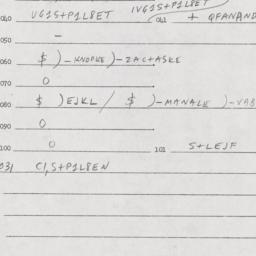 IVG1S+P1L8ET
040 UG1S+P1L8ET 041 + QFANAND
050 –
060 $ )-KNOPKE)-ZAC+ASKE
070 0
080 $ )EJKL / $ )-MANALK )-VAB
090 0
100 0 101 S+LEJF
031 CI,S+P1L8EN